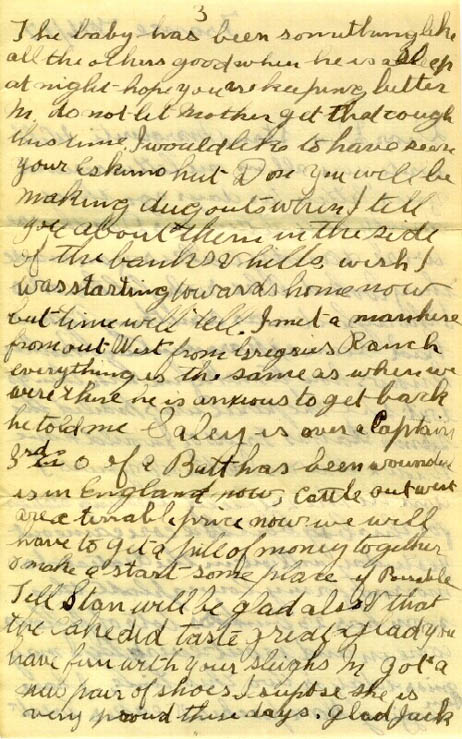 3
The baby has been something like
all the others good when he is asleep
at night hope you're keeping better
M. do not let Mother get that cough
this time, I would like to have seen
your Eskimo hut Dose you will be
making dugouts when I tell
you about them in the side
of the banks & hills, wish I
was starting towards home now
but time will tell. I met a man here
from out West from Gregsies Ranch
everything is the same as when we
were there he is anxious to get back
he told me Saley is over a Captain
3rd in O of a Batt has been wounded
is in England now, Cattle out west
are a terrable price now we will
have to get a pill of money together
& make a start some place if Possable
Tell Stan will be glad also & that
the cake did taste great & glad you
have fun with your sleighs M got a
new pair of shoes I supose she is
very proud these days. glad Jack